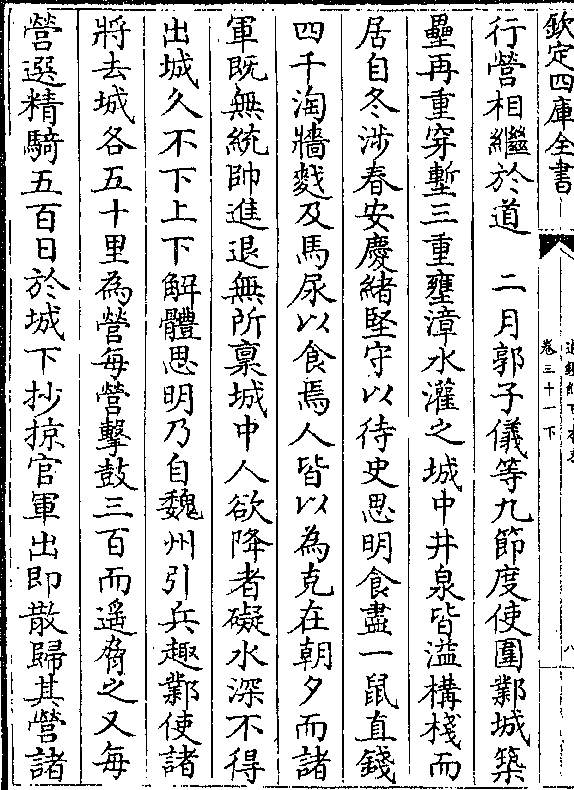 欽定四庫全書
卷三十一下
八
行營相繼於道　二月郭子儀等九節度使圍鄴城築
壘再重穿塹三重壅漳水灌之城中井泉皆溢構棧而
居自冬涉春安慶緒堅守以待史思明食盡一鼠直錢
四千淘牆䴬及馬尿以食焉人皆以為克在朝夕而諸
軍既無統帥進退無所禀城中人欲降者礙水深不得
出城久不下上下解體思明乃自魏州引兵趣鄴使諸
將去城各五十里為營每營擊鼓三百而遥脅之又每
營選精騎五百日於城下抄掠官軍出即散歸其營諸